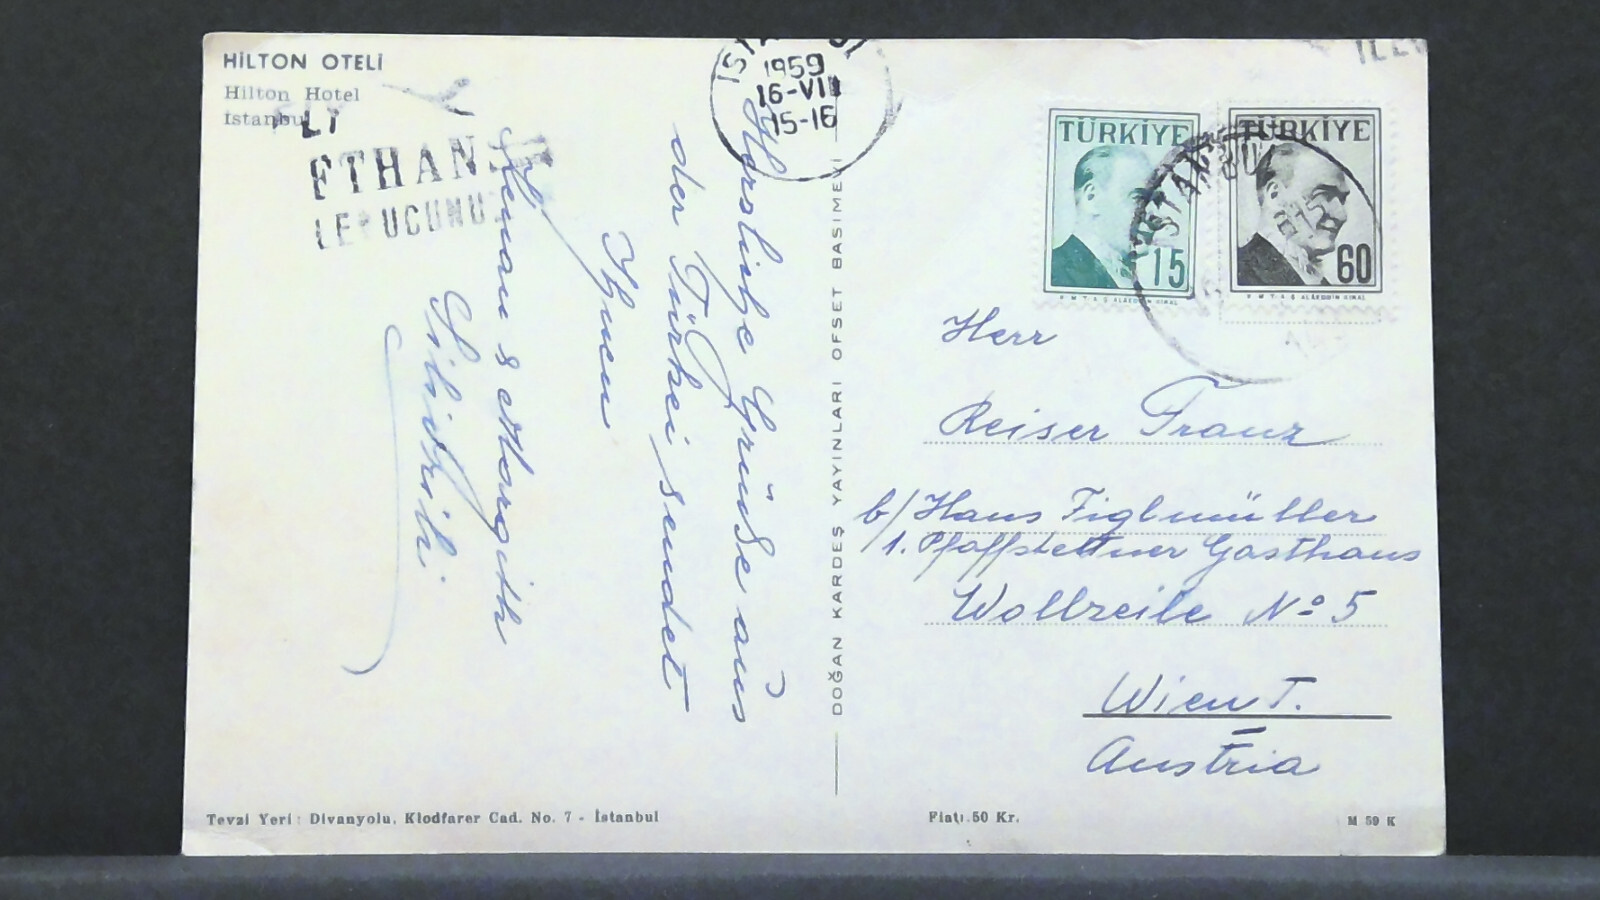 HİLTON OTELİ
Hilton Hotel
Istanbul
Herzliche Grüße aus
der Türkei sendet
Ihnen
Kenan & Margith
1959
16-VII
15-16
DOĞAN KARDEŞ YAYINLARI OFSET BASIMEVİ
TÜRKİYE
15
TÜRKİYE
60
ISTANBUL
Herr
Reiser Franz
b/ Hans Figlmüller
1. Pfaffstettner Gasthaus
Wollzeile No 5
Wien I.
Austria
Tevzi Yeri: Divanyolu, Klodfarer Cad. No. 7 - İstanbul
Fiatı.50 Kr.
M 59 K